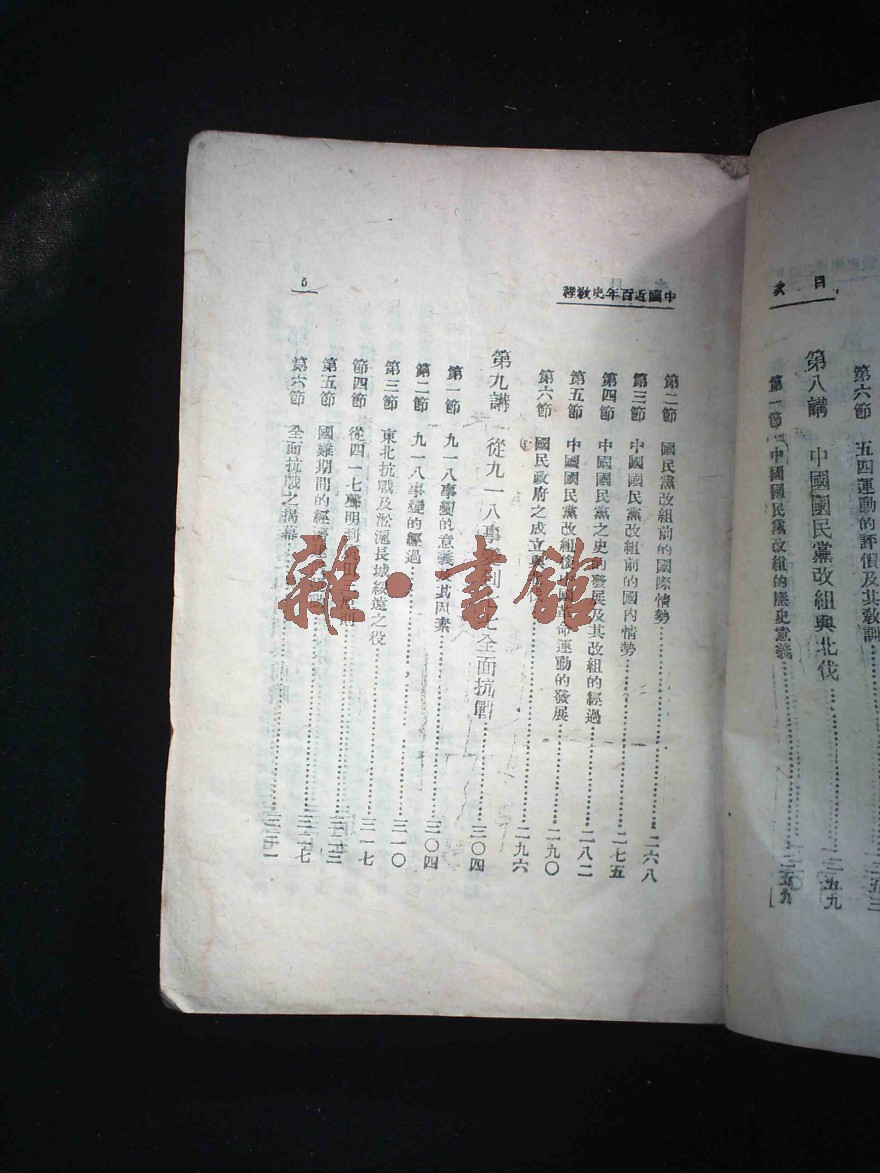 目次
第六節 五四運動的評價及其敎訓……二五三
第八講 中國國民黨改組與北伐……二五九
第一節 中國國民黨改組的歷史意義……二五九
中國近百年史敎程
第二節 國民黨改組前的國際情勢……二六八
第三節 中國國民黨改組前的國內情勢……二七五
第四節 中國國民黨之史的發展及其改組的經過……二八二
第五節 中國國民黨改組後中國革命運動的發展……二九〇
第六節 國民政府之成立與……二九六
第九講 從九一八事變到 全面抗戰……三〇四
第一節 九一八事變的意義及其因素……三〇四
第二節 九一八事變的經過……三一〇
第三節 東北抗戰及淞滬長城綏遠之役……三一七
第四節 從四一七聲明到……三二三
第五節 國難期間的經濟……三二七
第六節 全面抗戰之揭幕……
雜·書館